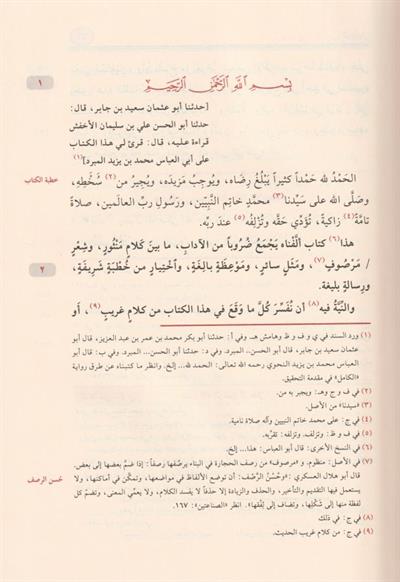 بِسْمِ اللَّهِ الرَّحْمَنِ الرَّحِيمِ
١
[حدثنا أبو عثمان سعيد بن جابر، قال:
حدثنا أبو الحسن علي بن سليمان الأخفش
قراءة عليه، قال: قرئ لي هذا الكتاب
على أبي العباس محمد بن يزيد المبرد](١)
الحَمْدُ لله حَمْداً كثيراً يَبْلُغُ رِضَاه، ويُوجِبُ مَزيدَه، ويُجيرُ من(٢) سَخَطِه،
خطبة الكتاب
وصَلَّى الله على سيِّدنا(٣) محمَّدٍ خاتمِ النَّبيّين، ورسولِ ربِّ العالَمين، صلاةً
تامَّةً(٤) زاكيةً، تُؤَدِّي حَقَّه وتُزْلِفُه(٥) عندَ ربِّه.
هذا(٦) كتاب ألَّفْناه يَجْمَعُ ضُروباً من الآدابِ، ما بينَ كلامٍ مَنْثُورٍ، وشِعْرٍ
٢
/ مَرْصوفٍ(٧)، ومَثَلٍ سائرٍ، ومَوْعِظةٍ بالِغَةٍ، واخْتِيارٍ من خُطْبَةٍ شَريفةٍ،
ورِسالةٍ بليغة.
والنِّيَّةُ فيه(٨) أن نُفَسِّرَ كُلَّ ما وَقَعَ في هذا الكتابِ من كلامٍ غريبٍ(٩)، أو
(١) ورد السند في ي و ف و ظ وهامش هـ. وفي أ: حدثنا أبو بكر محمد بن عمر بن عبد العزيز، قال أبو
عثمان سعيد بن جابر، قال أبو الحسن.. المبرد. وفي د: حدثنا أبو الحسن... المبرد. وفي ب: قال أبو
العباس محمد بن يزيد النحوي رحمه الله تعالى: الحمد لله... إلخ. وانظر ما كتبناه عن طرق رواية
«الكامل» في مقدمة التحقيق.
(٢) في ف و ج وهـ: ويجير به من.
(٣) «سيدنا» من الأصل.
(٤) في ج: على محمد خاتم النبيين وآله صلاة نامية.
(٥) في ف و ظ: وتزلف. وتزلفه: تقرِّبه.
(٦) في النسخ الأخرى: قال أبو العباس: هذا... إلخ.
(٧) في الأصل: منظوم. و «مرصوف» من رصف الحجارة في البناء يرصُفها رصفاً: إذا ضمَّ بعضها إلى بعض.
قال أبو هلال العسكري: «وحُسْنُ الرَّصْف: أن توضع الألفاظ في مواضعها، وتمكَّن في أماكنها، ولا
حُسن الرصف
يستعمل فيها التقديم والتأخير، والحذف والزيادة إلا حذفاً لا يفسد الكلام، ولا يعمي المعنى، وتضمّ كل
لفظة منها إلى شَكْلِها، وتضاف إلى لِفْقها». انظر «الصناعتين»: ١٦٧.
(٨) في ج: في ذلك
(٩) في ج: من كلام غريب الحديث.